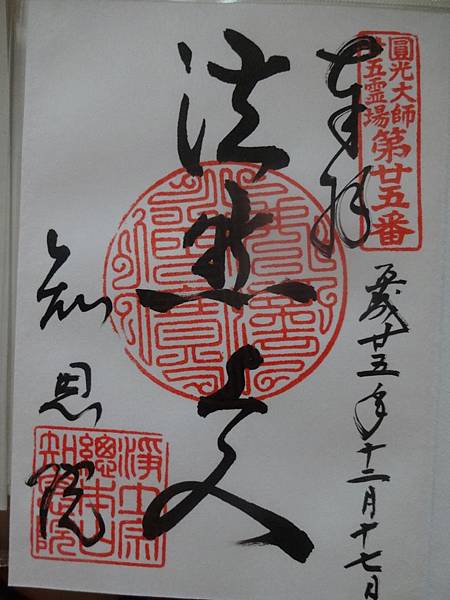 圓光大師
廿五霊場
第廿五番
奉拝
平成廿五年十二月十七日
法然上人
知恩院
淨土宗
總本山
知恩院